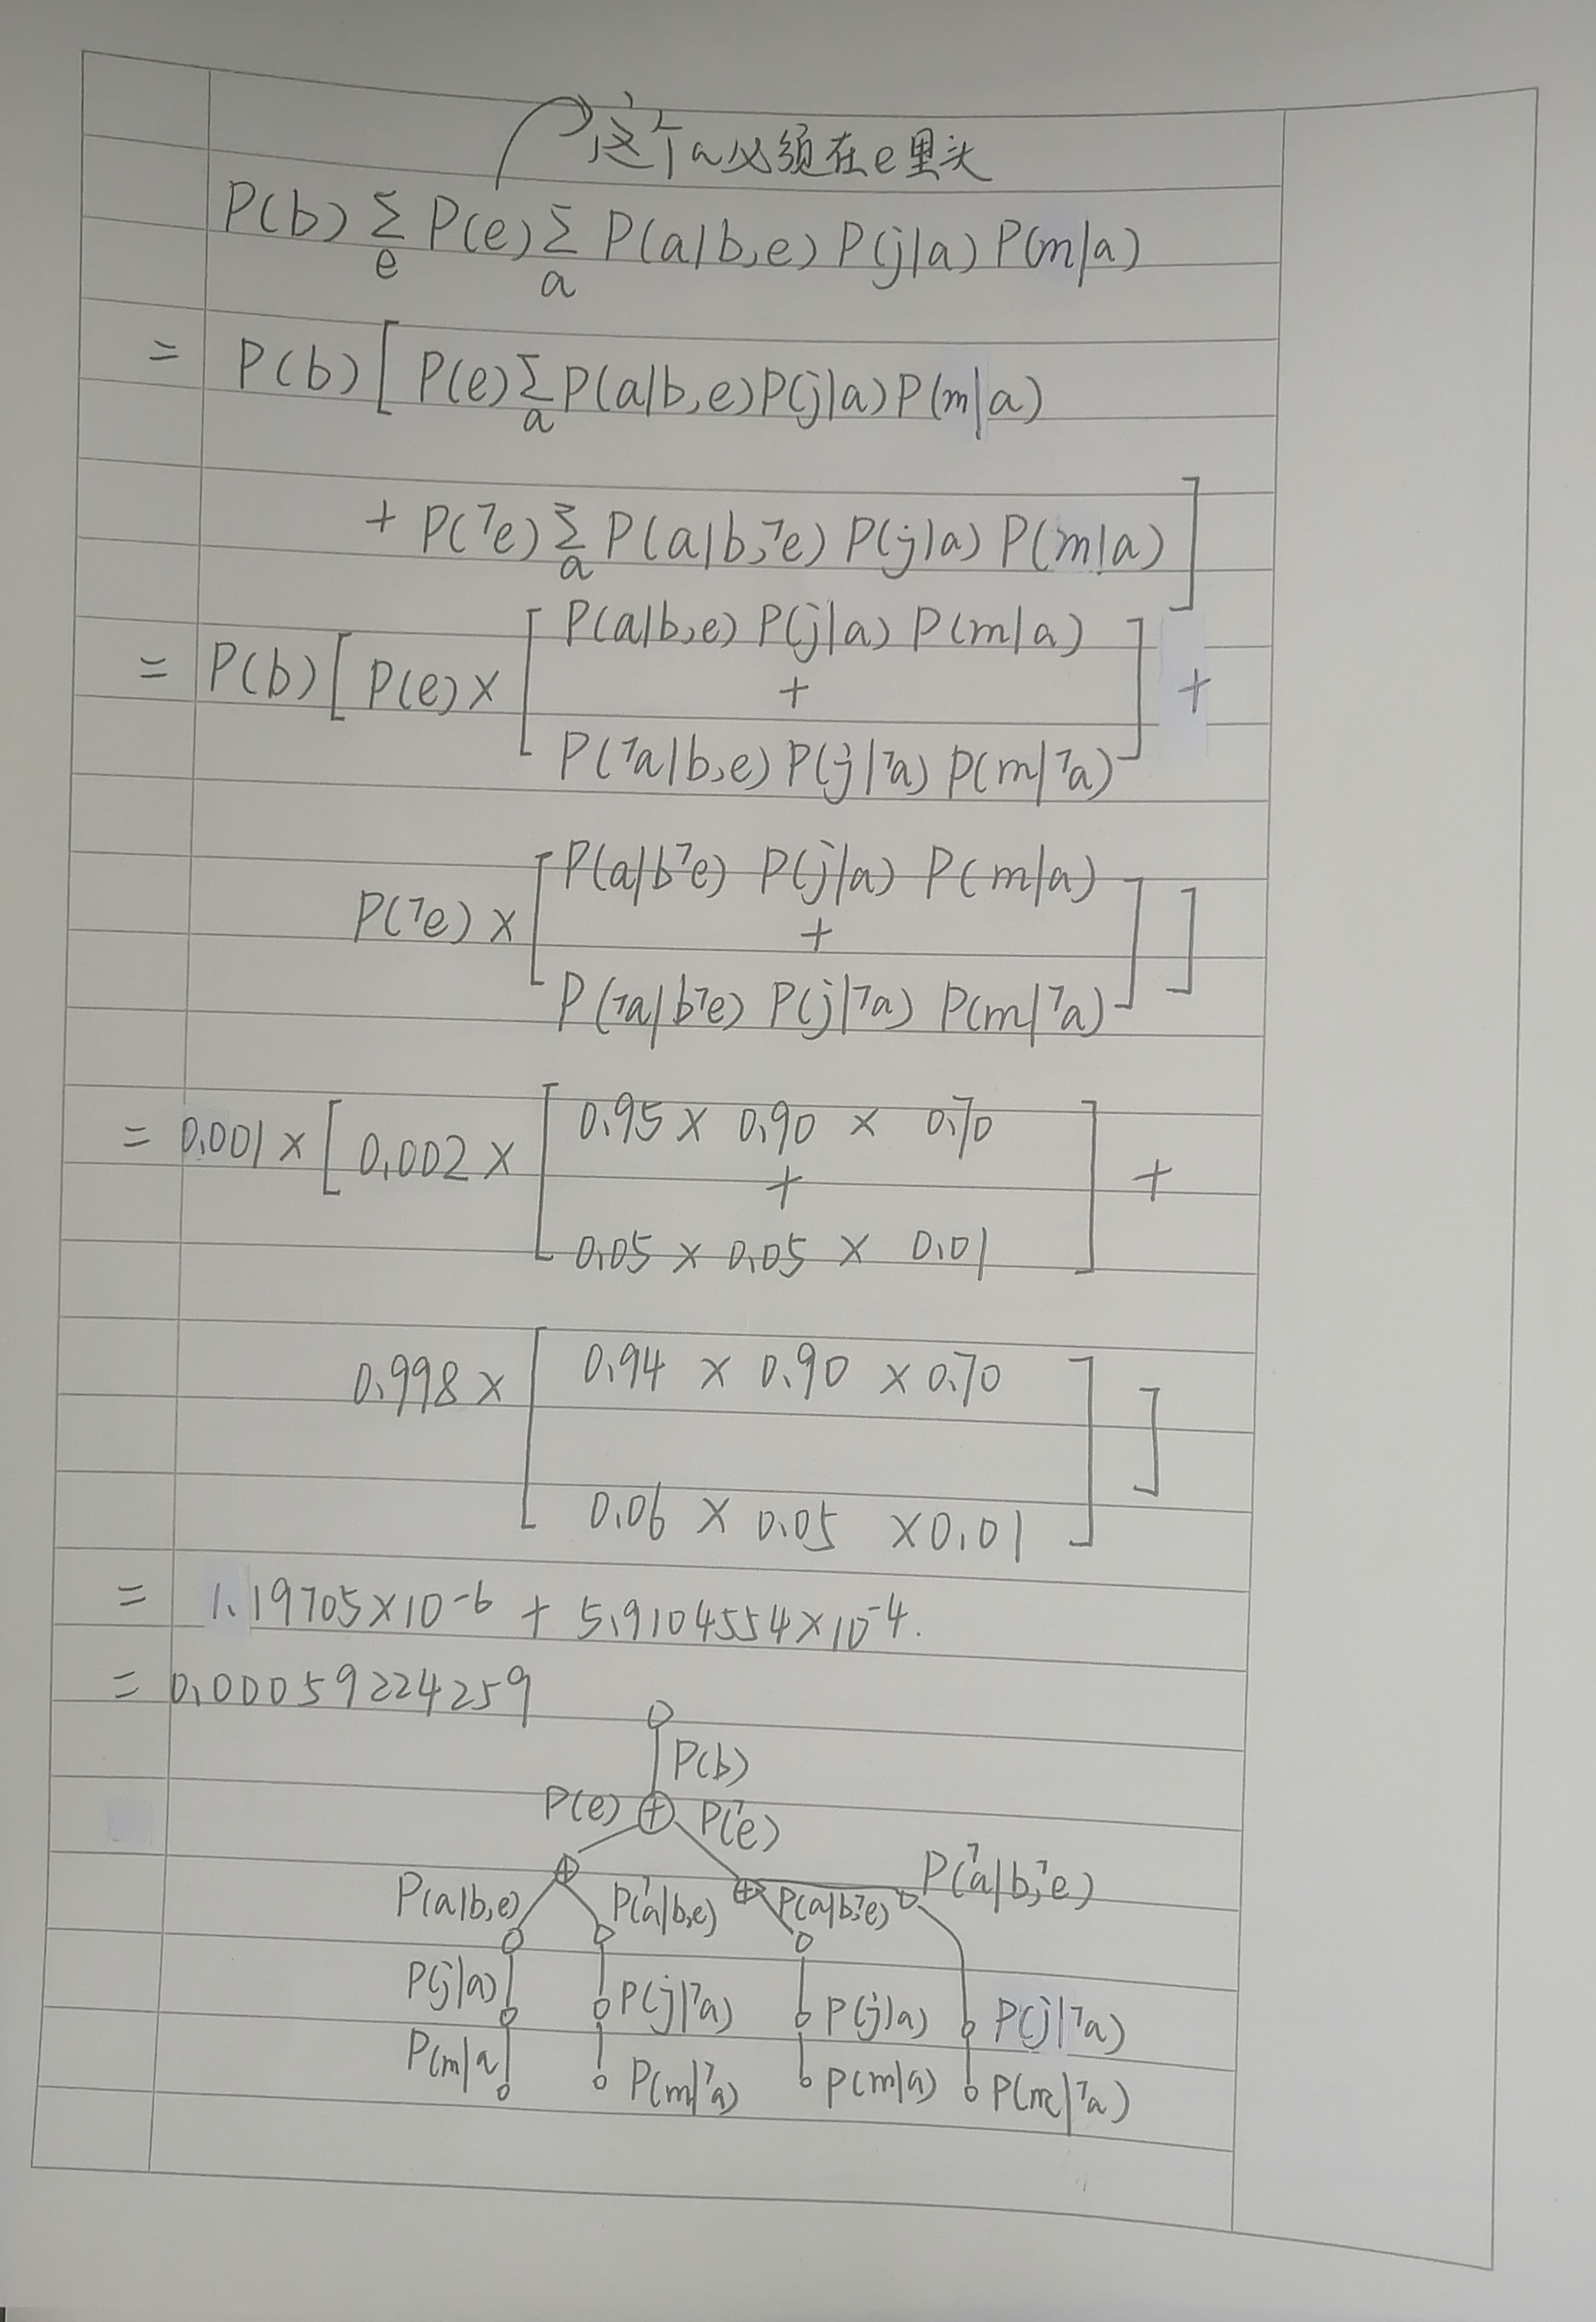 这个a必须在e里头
P(b) Σ_e P(e) Σ_a P(a|b,e) P(j|a) P(m|a)
= P(b) [ P(e) Σ_a P(a|b,e) P(j|a) P(m|a)
+ P(¬e) Σ_a P(a|b,¬e) P(j|a) P(m|a) ]
P(a|b,e) P(j|a) P(m|a)
= P(b) [ P(e) × [ + ] +
P(¬a|b,e) P(j|¬a) P(m|¬a)
P(a|b¬e) P(j|a) P(m|a)
P(¬e) × [ + ] ]
P(¬a|b¬e) P(j|¬a) P(m|¬a)
0.95 × 0.90 × 0.70
= 0.001 × [ 0.002 × [ + ] +
0.05 × 0.05 × 0.01
0.94 × 0.90 × 0.70
0.998 × [ ] ]
0.06 × 0.05 × 0.01
= 1.19705×10⁻⁶ + 5.9104554×10⁻⁴.
= 0.00059224259
P(b)
P(e) + P(¬e)
P(a|b,e) P(¬a|b,e) P(a|b,¬e) P(¬a|b,¬e)
P(j|a) P(j|¬a) P(j|a) P(j|¬a)
P(m|a P(m|¬a) P(m|a) P(m|¬a)